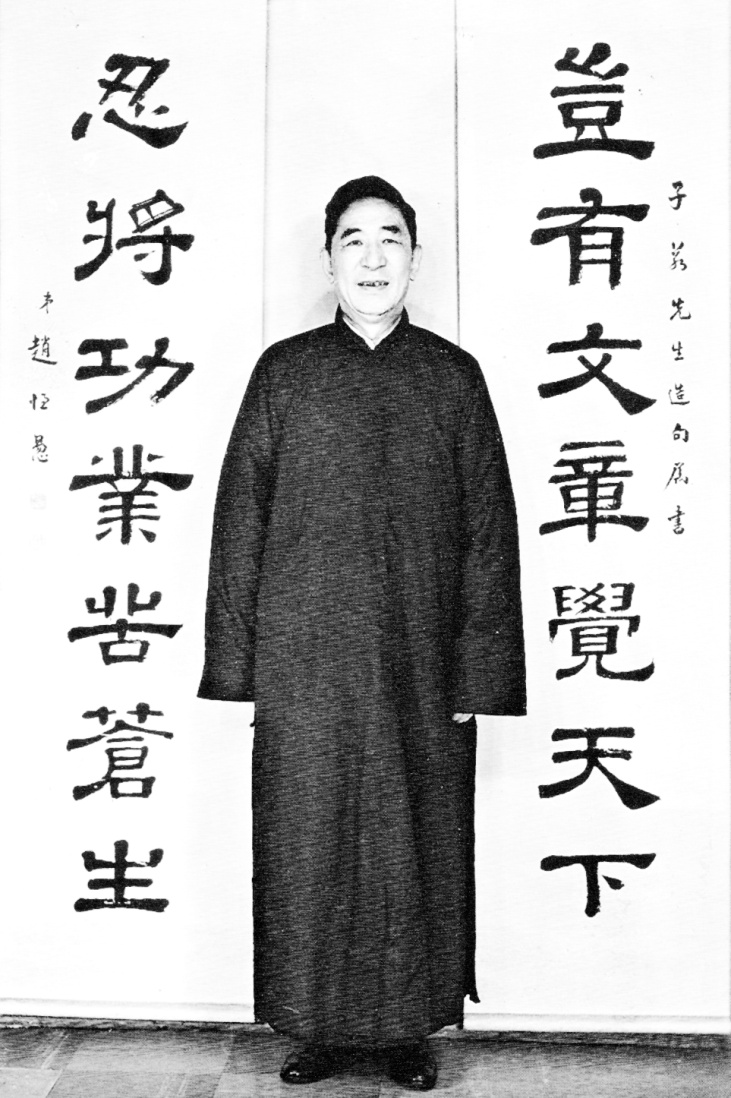 子若先生造句屬書
豈有文章覺天下
忍將功業苦蒼生
弟趙恒惖